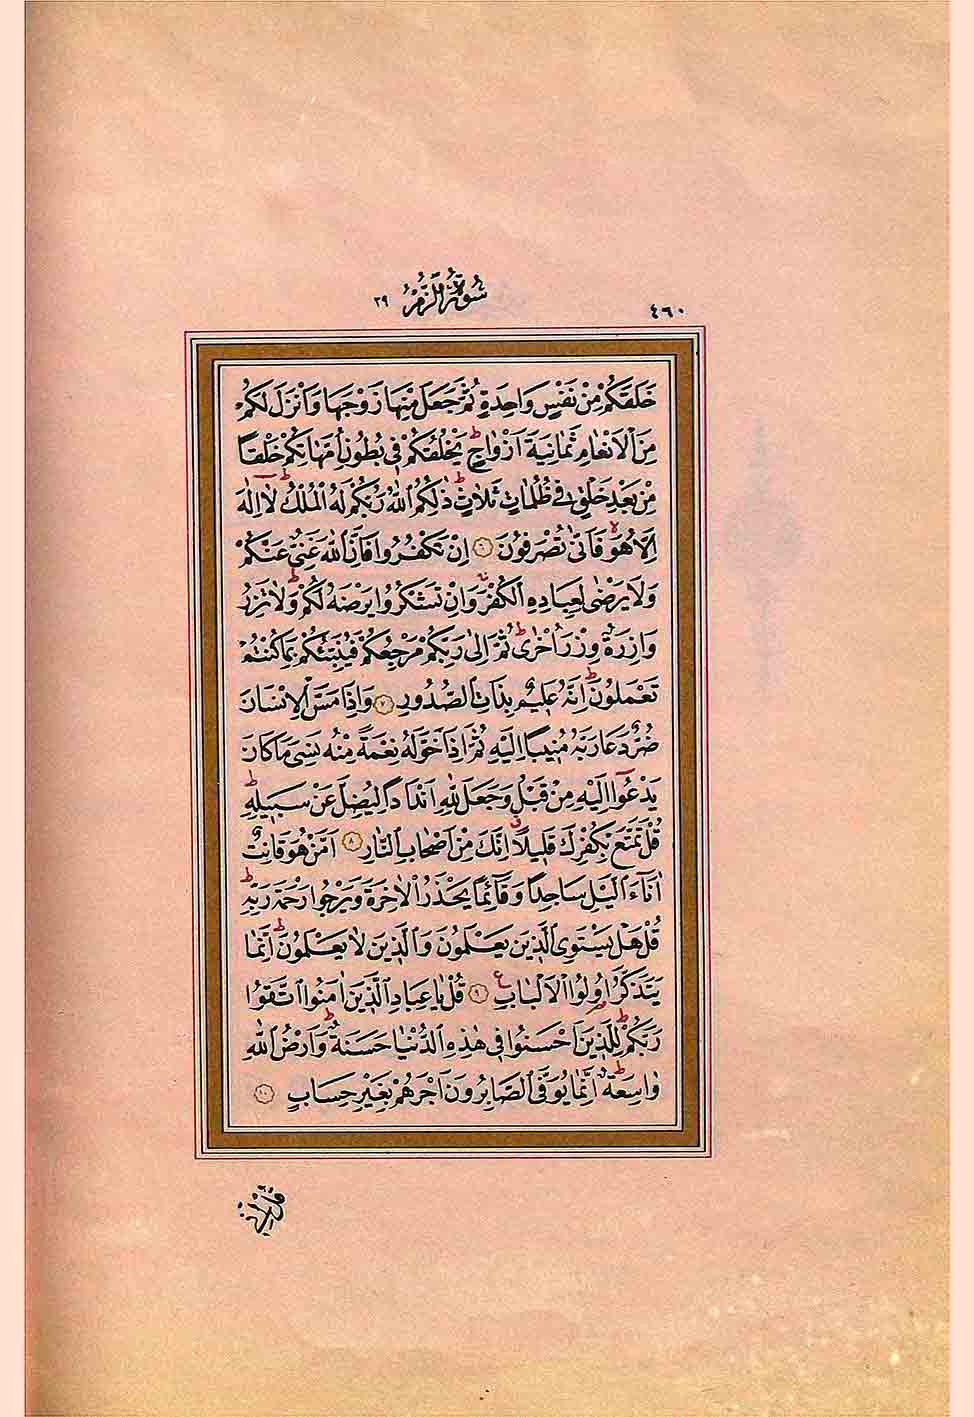 ٤٦٠
سُورَةُ الزُّمَرِ ٣٩
خَلَقَكُمْ مِنْ نَفْسٍ وَاحِدَةٍ ثُمَّ جَعَلَ مِنْهَا زَوْجَهَا وَاَنْزَلَ لَكُمْ
مِنَ الْاَنْعَامِ ثَمَانِيَةَ اَزْوَاجٍۜ يَخْلُقُكُمْ فٖي بُطُونِ اُمَّهَاتِكُمْ خَلْقًا
مِنْ بَعْدِ خَلْقٍ فٖي ظُلُمَاتٍ ثَلَاثٍۜ ذٰلِكُمُ اللّٰهُ رَبُّكُمْ لَهُ الْمُلْكُۜ لَٓا اِلٰهَ
اِلَّا هُوَۚ فَاَنّٰى تُصْرَفُونَ ﴿٦﴾ اِنْ تَكْفُرُوا فَاِنَّ اللّٰهَ غَنِيٌّ عَنْكُمْ
وَلَا يَرْضٰى لِعِبَادِهِ الْكُفْرَۚ وَاِنْ تَشْكُرُوا يَرْضَهُ لَكُمْۜ وَلَا تَزِرُ
وَازِرَةٌ وِزْرَ اُخْرٰىۜ ثُمَّ اِلٰى رَبِّكُمْ مَرْجِعُكُمْ فَيُنَبِّئُكُمْ بِمَا كُنْتُمْ
تَعْمَلُونَۜ اِنَّهُ عَلٖيمٌ بِذَاتِ الصُّدُورِ ﴿٧﴾ وَاِذَا مَسَّ الْاِنْسَانَ
ضُرٌّ دَعَا رَبَّهُ مُنٖيبًا اِلَيْهِ ثُمَّ اِذَا خَوَّلَهُ نِعْمَةً مِنْهُ نَسِيَ مَا كَانَ
يَدْعُٓوا اِلَيْهِ مِنْ قَبْلُ وَجَعَلَ لِلّٰهِ اَنْدَادًا لِيُضِلَّ عَنْ سَبٖيلِهٖۜ
قُلْ تَمَتَّعْ بِكُفْرِكَ قَلٖيلًاۗ اِنَّكَ مِنْ اَصْحَابِ النَّارِ ﴿٨﴾ اَمَّنْ هُوَ قَانِتٌ
اٰنَٓاءَ الَّيْلِ سَاجِدًا وَقَٓائِمًا يَحْذَرُ الْاٰخِرَةَ وَيَرْجُوا رَحْمَةَ رَبِّهٖۜ
قُلْ هَلْ يَسْتَوِي الَّذٖينَ يَعْلَمُونَ وَالَّذٖينَ لَا يَعْلَمُونَۜ اِنَّمَا
يَتَذَكَّرُ اُولُوا الْاَلْبَابِ ع ﴿٩﴾ قُلْ يَا عِبَادِ الَّذٖينَ اٰمَنُوا اتَّقُوا
رَبَّكُمْۜ لِلَّذٖينَ اَحْسَنُوا فٖي هٰذِهِ الدُّنْيَا حَسَنَةٌۜ وَاَرْضُ اللّٰهِ
وَاسِعَةٌۜ اِنَّمَا يُوَفَّى الصَّابِرُونَ اَجْرَهُمْ بِغَيْرِ حِسَابٍ ﴿١٠﴾
قُلْ اِنّٖي